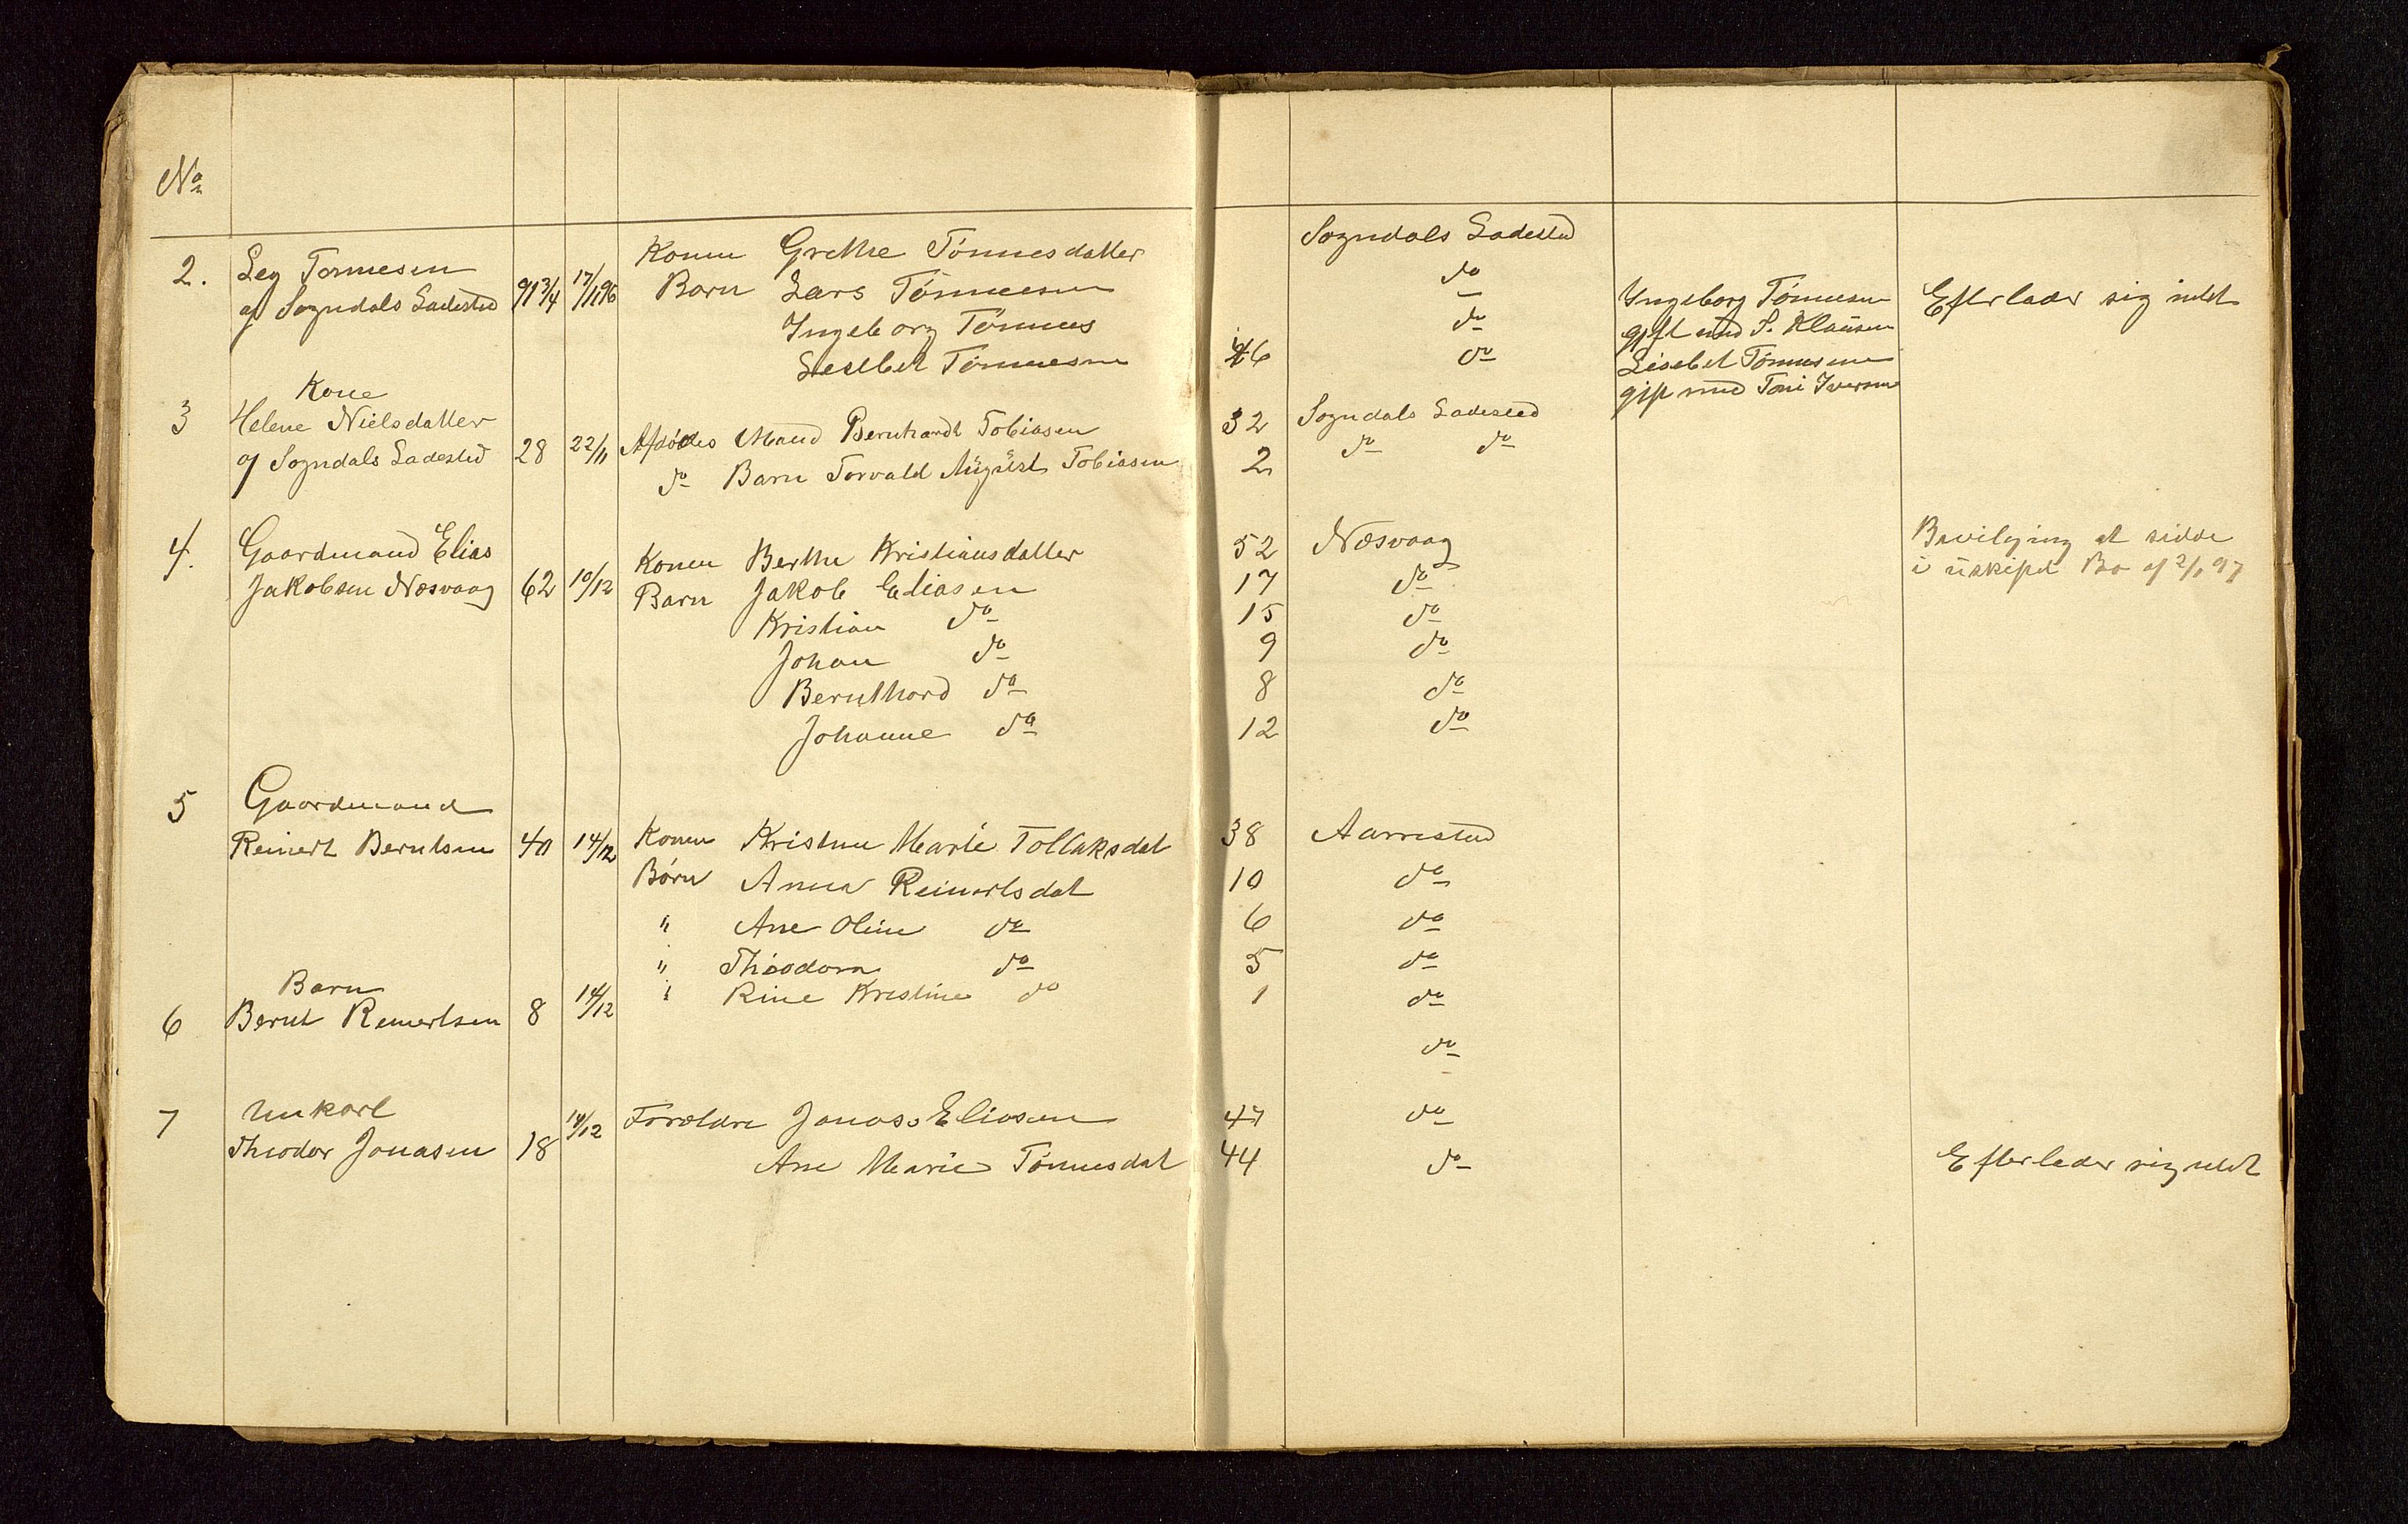 No
2. Leg Tønnesen
af Sogndals Ladested 91 3/4 17/11 96
Konen Grethe Tønnesdatter Sogndals Ladested
Barn Lars Tønnesen do
Ingeborg Tønnes do
Lisebet Tønnesen 46 do
Ingeborg Tønnesen
gift med S. Klausen
Lisebet Tønnesen
gift med Toni Iversen
Efterlader sig intet
Kone
3 Helene Nielsdatter
af Sogndals Ladested 28 22/11
Afdødes Mand Bernhardt Tobiasen 32 Sogndals Ladested
do Barn Torvald August Tobiasen 2 do do
4. Gaardmand Elias
Jakobsen Næsvaag 62 10/12
Konen Berthe Kristiansdatter 52 Næsvaag
Barn Jakob Eliasen 17 do
Kristian do 15 do
Johan do 9 do
Bernthard do 8 do
Johanne do 12 do
Bevilgning at sidde
i uskiftet Bo af 2/1 97
5 Gaardmand
Reinert Berntsen 40 14/12
Konen Kristine Marie Tollaksdat 38 Aarrestad
Børn Anna Reinertsdat 10 do
" Ane Oline do 6 do
" Theodora do 5 do
" Rine Kristine do 1 do
Barn
6 Bernt Reinertsen 8 14/12 do
7 Unkarl
Theodor Jonasen 18 14/12
Forældre Jonas Eliasen 47 do
Ane Marie Tønnesdat 44 do
Efterlader sig intet